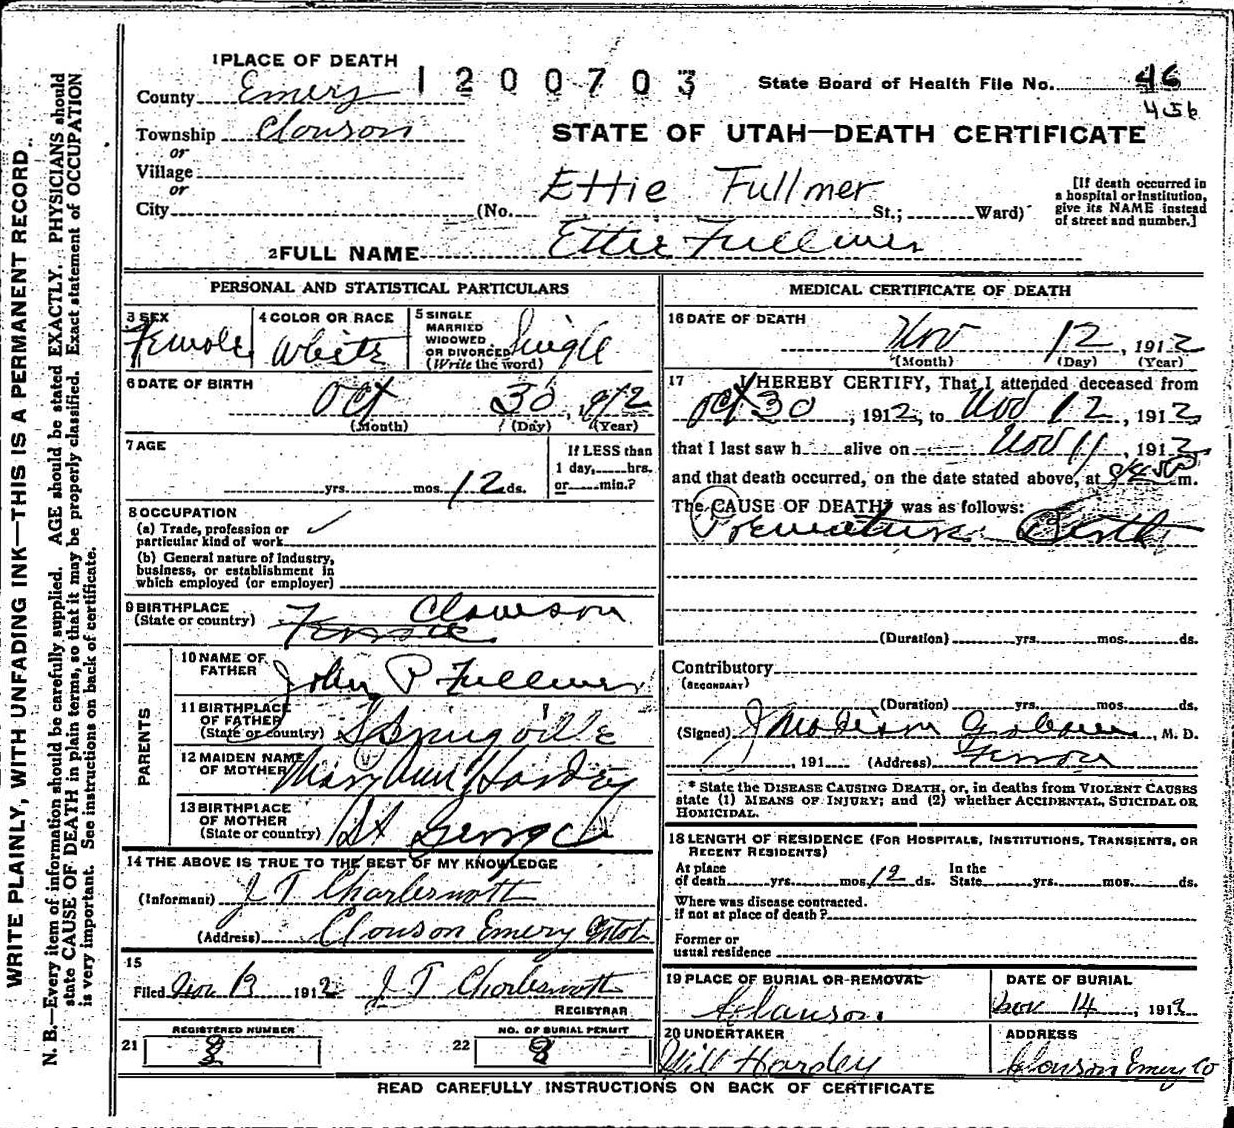 WRITE PLAINLY, WITH UNFADING INK—THIS IS A PERMANENT RECORD.
N. B.—Every item of information should be carefully supplied. AGE should be stated EXACTLY. PHYSICIANS should
state CAUSE OF DEATH in plain terms, so that it may be properly classified. Exact statement of OCCUPATION
is very important. See instructions on back of certificate.
1 PLACE OF DEATH
1200703
State Board of Health File No. 46
456
County Emery
Township Clowson
or
Village
or
City
STATE OF UTAH—DEATH CERTIFICATE
Ettie Fullmer
(No. St.; Ward)
[If death occurred in
a hospital or institution,
give its NAME instead
of street and number.]
2 FULL NAME Ettie Fullmer
PERSONAL AND STATISTICAL PARTICULARS
3 SEX
Female
4 COLOR OR RACE
White
5 SINGLE
MARRIED
WIDOWED
OR DIVORCED
(Write the word)
Single
6 DATE OF BIRTH
Oct 30, 912
(Month) (Day) (Year)
7 AGE
yrs. mos. 12 ds.
If LESS than
1 day, hrs.
or min.?
8 OCCUPATION
(a) Trade, profession or
particular kind of work
(b) General nature of industry,
business, or establishment in
which employed (or employer)
9 BIRTHPLACE
(State or country)
Clawson
PARENTS
10 NAME OF
FATHER
John P Fullmer
11 BIRTHPLACE
OF FATHER
(State or country)
Springville
12 MAIDEN NAME
OF MOTHER
Mary Ann Hardey
13 BIRTHPLACE
OF MOTHER
(State or country)
St George
14 THE ABOVE IS TRUE TO THE BEST OF MY KNOWLEDGE
(Informant) J T Charlesworth
(Address) Clowson Emery
15
Filed Nov 13 1912 J T Charlesworth
REGISTRAR
21 REGISTERED NUMBER
22 NO. OF BURIAL PERMIT
8
MEDICAL CERTIFICATE OF DEATH
16 DATE OF DEATH
Nov 12, 1912
(Month) (Day) (Year)
17 I HEREBY CERTIFY, That I attended deceased from
Oct 30, 1912, to Nov 12, 1912
that I last saw h alive on Nov 11, 1912
and that death occurred, on the date stated above, at m.
The CAUSE OF DEATH* was as follows:
Premature Birth
(Duration) yrs. mos. ds.
Contributory
(SECONDARY)
(Duration) yrs. mos. ds.
(Signed) J Madison , M. D.
, 191 (Address) Ferron
* State the DISEASE CAUSING DEATH, or, in deaths from VIOLENT CAUSES
state (1) MEANS OF INJURY; and (2) whether ACCIDENTAL, SUICIDAL OR
HOMICIDAL.
18 LENGTH OF RESIDENCE (FOR HOSPITALS, INSTITUTIONS, TRANSIENTS, OR
RECENT RESIDENTS)
At place
of death yrs. mos. 12 ds.
In the
State yrs. mos. ds.
Where was disease contracted.
if not at place of death?
Former or
usual residence
19 PLACE OF BURIAL OR REMOVAL
Clauson.
DATE OF BURIAL
Nov 14, 1912
20 UNDERTAKER
Will Hardey
ADDRESS
Clowson Emery Co
READ CAREFULLY INSTRUCTIONS ON BACK OF CERTIFICATE